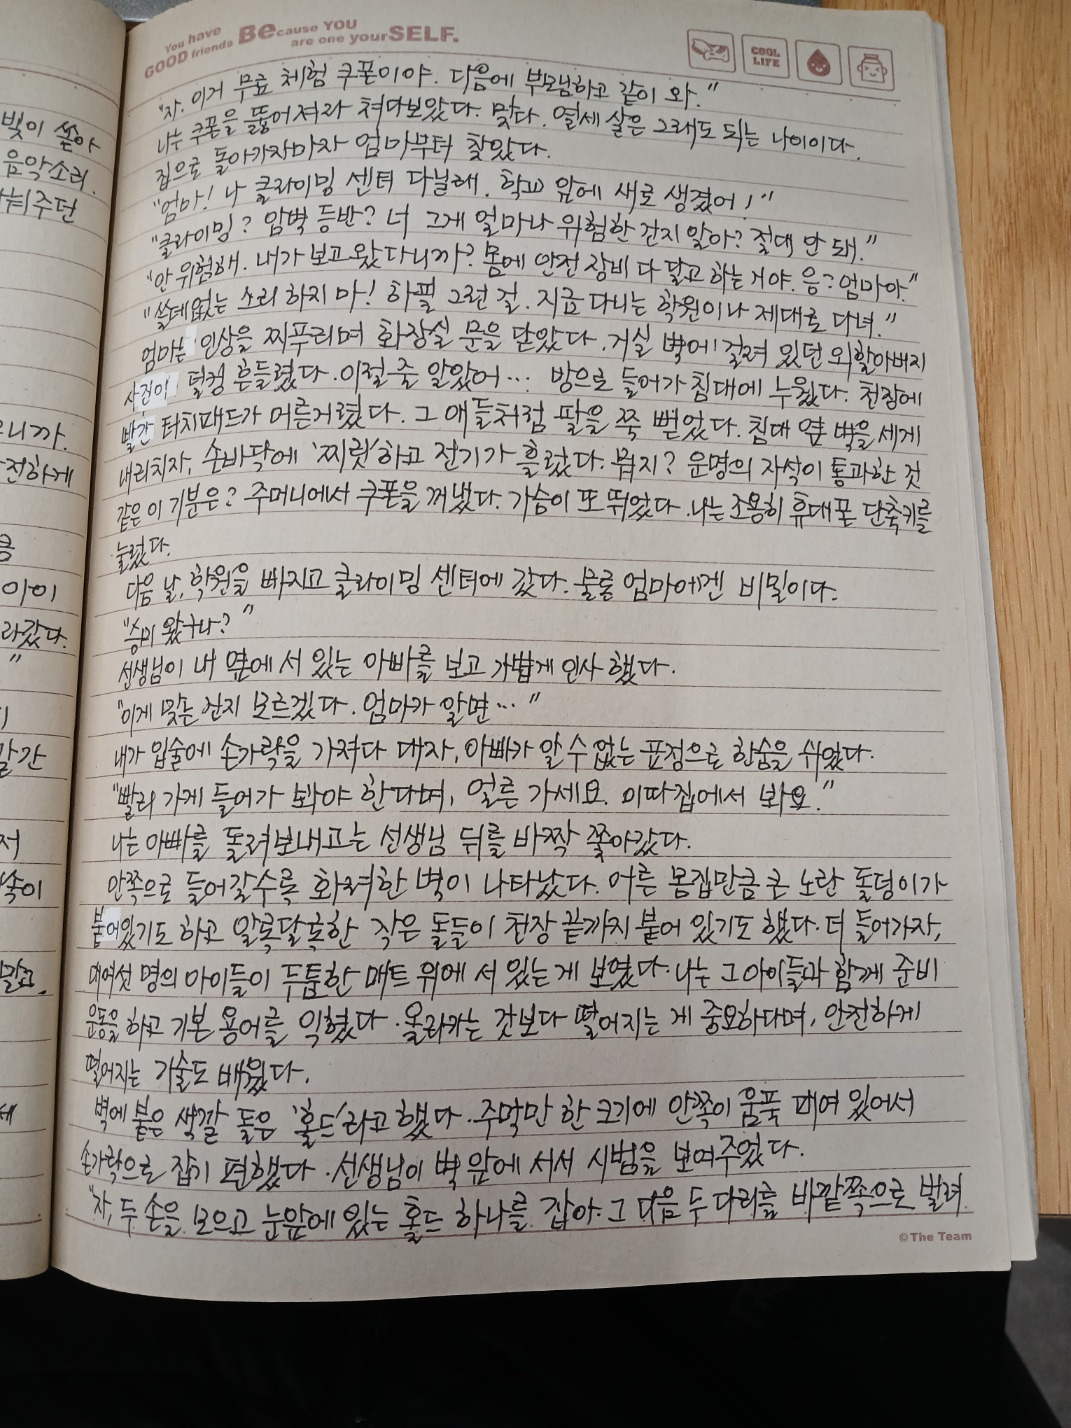 You have
GOOD friends BEcause YOU
are one yourSELF.
COOL
LIFE
"자. 이거 무료 체험 쿠폰이야. 다음에 부모님하고 같이 와."
나는 쿠폰을 뚫어져라 쳐다보았다. 맞다. 열세 살은 그래도 되는 나이이다.
집으로 돌아가자마자 엄마부터 찾았다.
"엄마! 나 클라이밍 센터 다닐래. 학교 앞에 새로 생겼어!"
"클라이밍? 암벽 등반? 너 그게 얼마나 위험한 건지 알아? 절대 안 돼."
"안 위험해. 내가 보고 왔다니까? 몸에 안전 장비 다 달고 하는 거야. 응? 엄마아."
"쓸데없는 소리 하지 마! 하필 그런 걸. 지금 다니는 학원이나 제대로 다녀."
엄마는 인상을 찌푸리며 화장실 문을 닫았다. 거실 벽에 걸려 있던 외할아버지
사진이 덜컹 흔들렸다. 이럴 줄 알았어… 방으로 들어가 침대에 누웠다. 천장에
빨간 터치패드가 어른거렸다. 그 애들처럼 팔을 쭉 뻗었다. 침대 옆 벽을 세게
내리치자, 손바닥에 '찌릿'하고 전기가 흘렀다. 뭐지? 운명의 자석이 통과한 것
같은 이 기분은? 주머니에서 쿠폰을 꺼냈다. 가슴이 또 뛰었다. 나는 조용히 휴대폰 단축키를
눌렀다.
다음 날, 학원을 빠지고 클라이밍 센터에 갔다. 물론 엄마에겐 비밀이다.
"승미 왔구나?"
선생님이 내 옆에 서 있는 아빠를 보고 가볍게 인사 했다.
"이게 맞는 건지 모르겠다. 엄마가 알면…"
내가 입술에 손가락을 가져다 대자, 아빠가 알 수 없는 표정으로 한숨을 쉬었다.
"빨리 가게 들어가 봐야 한다며, 얼른 가세요. 이따 집에서 봐요."
나는 아빠를 돌려보내고는 선생님 뒤를 바짝 쫓아갔다.
안쪽으로 들어갈수록 화려한 벽이 나타났다. 어른 몸집만큼 큰 노란 돌덩이가
붙어있기도 하고 알록달록한 작은 돌들이 천장 끝까지 붙어 있기도 했다. 더 들어가자,
대여섯 명의 아이들이 두툼한 매트 위에 서 있는 게 보였다. 나는 그 아이들과 함께 준비
운동을 하고 기본 용어를 익혔다. 올라가는 것보다 떨어지는 게 중요하다며, 안전하게
떨어지는 기술도 배웠다.
벽에 붙은 색깔 돌은 '홀드'라고 했다. 주먹만 한 크기에 안쪽이 움푹 패여 있어서
손가락으로 잡기 편했다. 선생님이 벽 앞에 서서 시범을 보여주었다.
"자, 두 손을 모으고 눈앞에 있는 홀드 하나를 잡아. 그 다음 두 다리를 바깥쪽으로 벌려.
©The Team